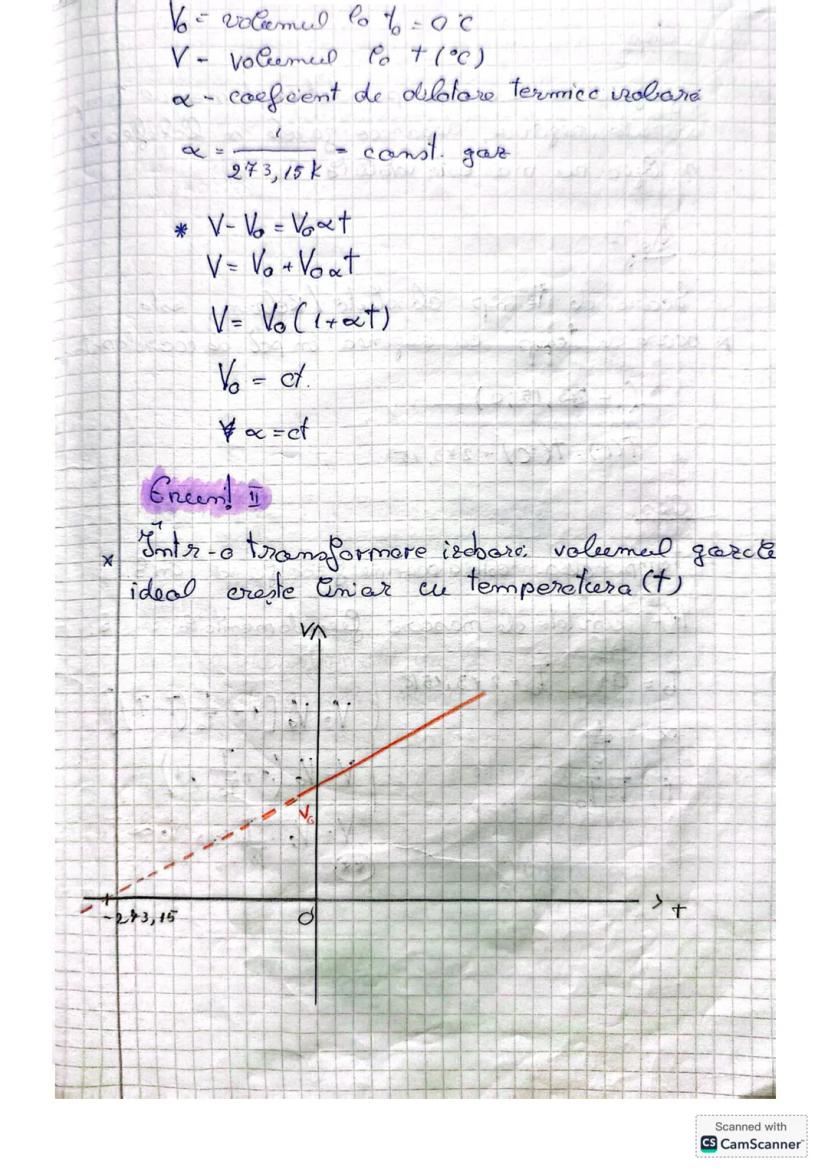 V₀ = volumul la t₀ = 0°C
V - volumul la t (°C)
α - coeficient de dilatare termică izobară
α = 1 / 273,15 K = const. gaz
* V - V₀ = V₀αt
V = V₀ + V₀αt
V = V₀ (1 + αt)
V₀ = ct.
α = ct
Enunț II
* Într-o transformare izobară volumul gazului
ideal crește liniar cu temperatura (t)
V
V₀
-273,15
O
t
Scanned with
CS CamScanner